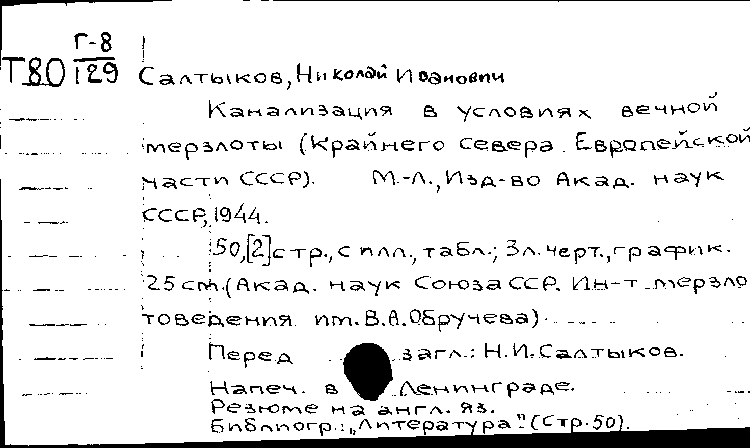 Г-8
Т80 129 Салтыков, Николай Иванович
Канализация в условиях вечной
мерзлоты (Крайнего севера Европейской
части СССР). М.-Л., Изд-во Акад. наук
СССР, 1944.
50,[2] стр., с илл., табл.; 3 л. черт., график.
25 cm. (Акад. наук Союза ССР. Ин-т мерзло
товедения им. В.А.Обручева).
Перед загл.: Н.И.Салтыков.
Напеч. в Ленинграде.
Резюме на англ. яз.
Библиогр.: „Литература" (Стр.50).